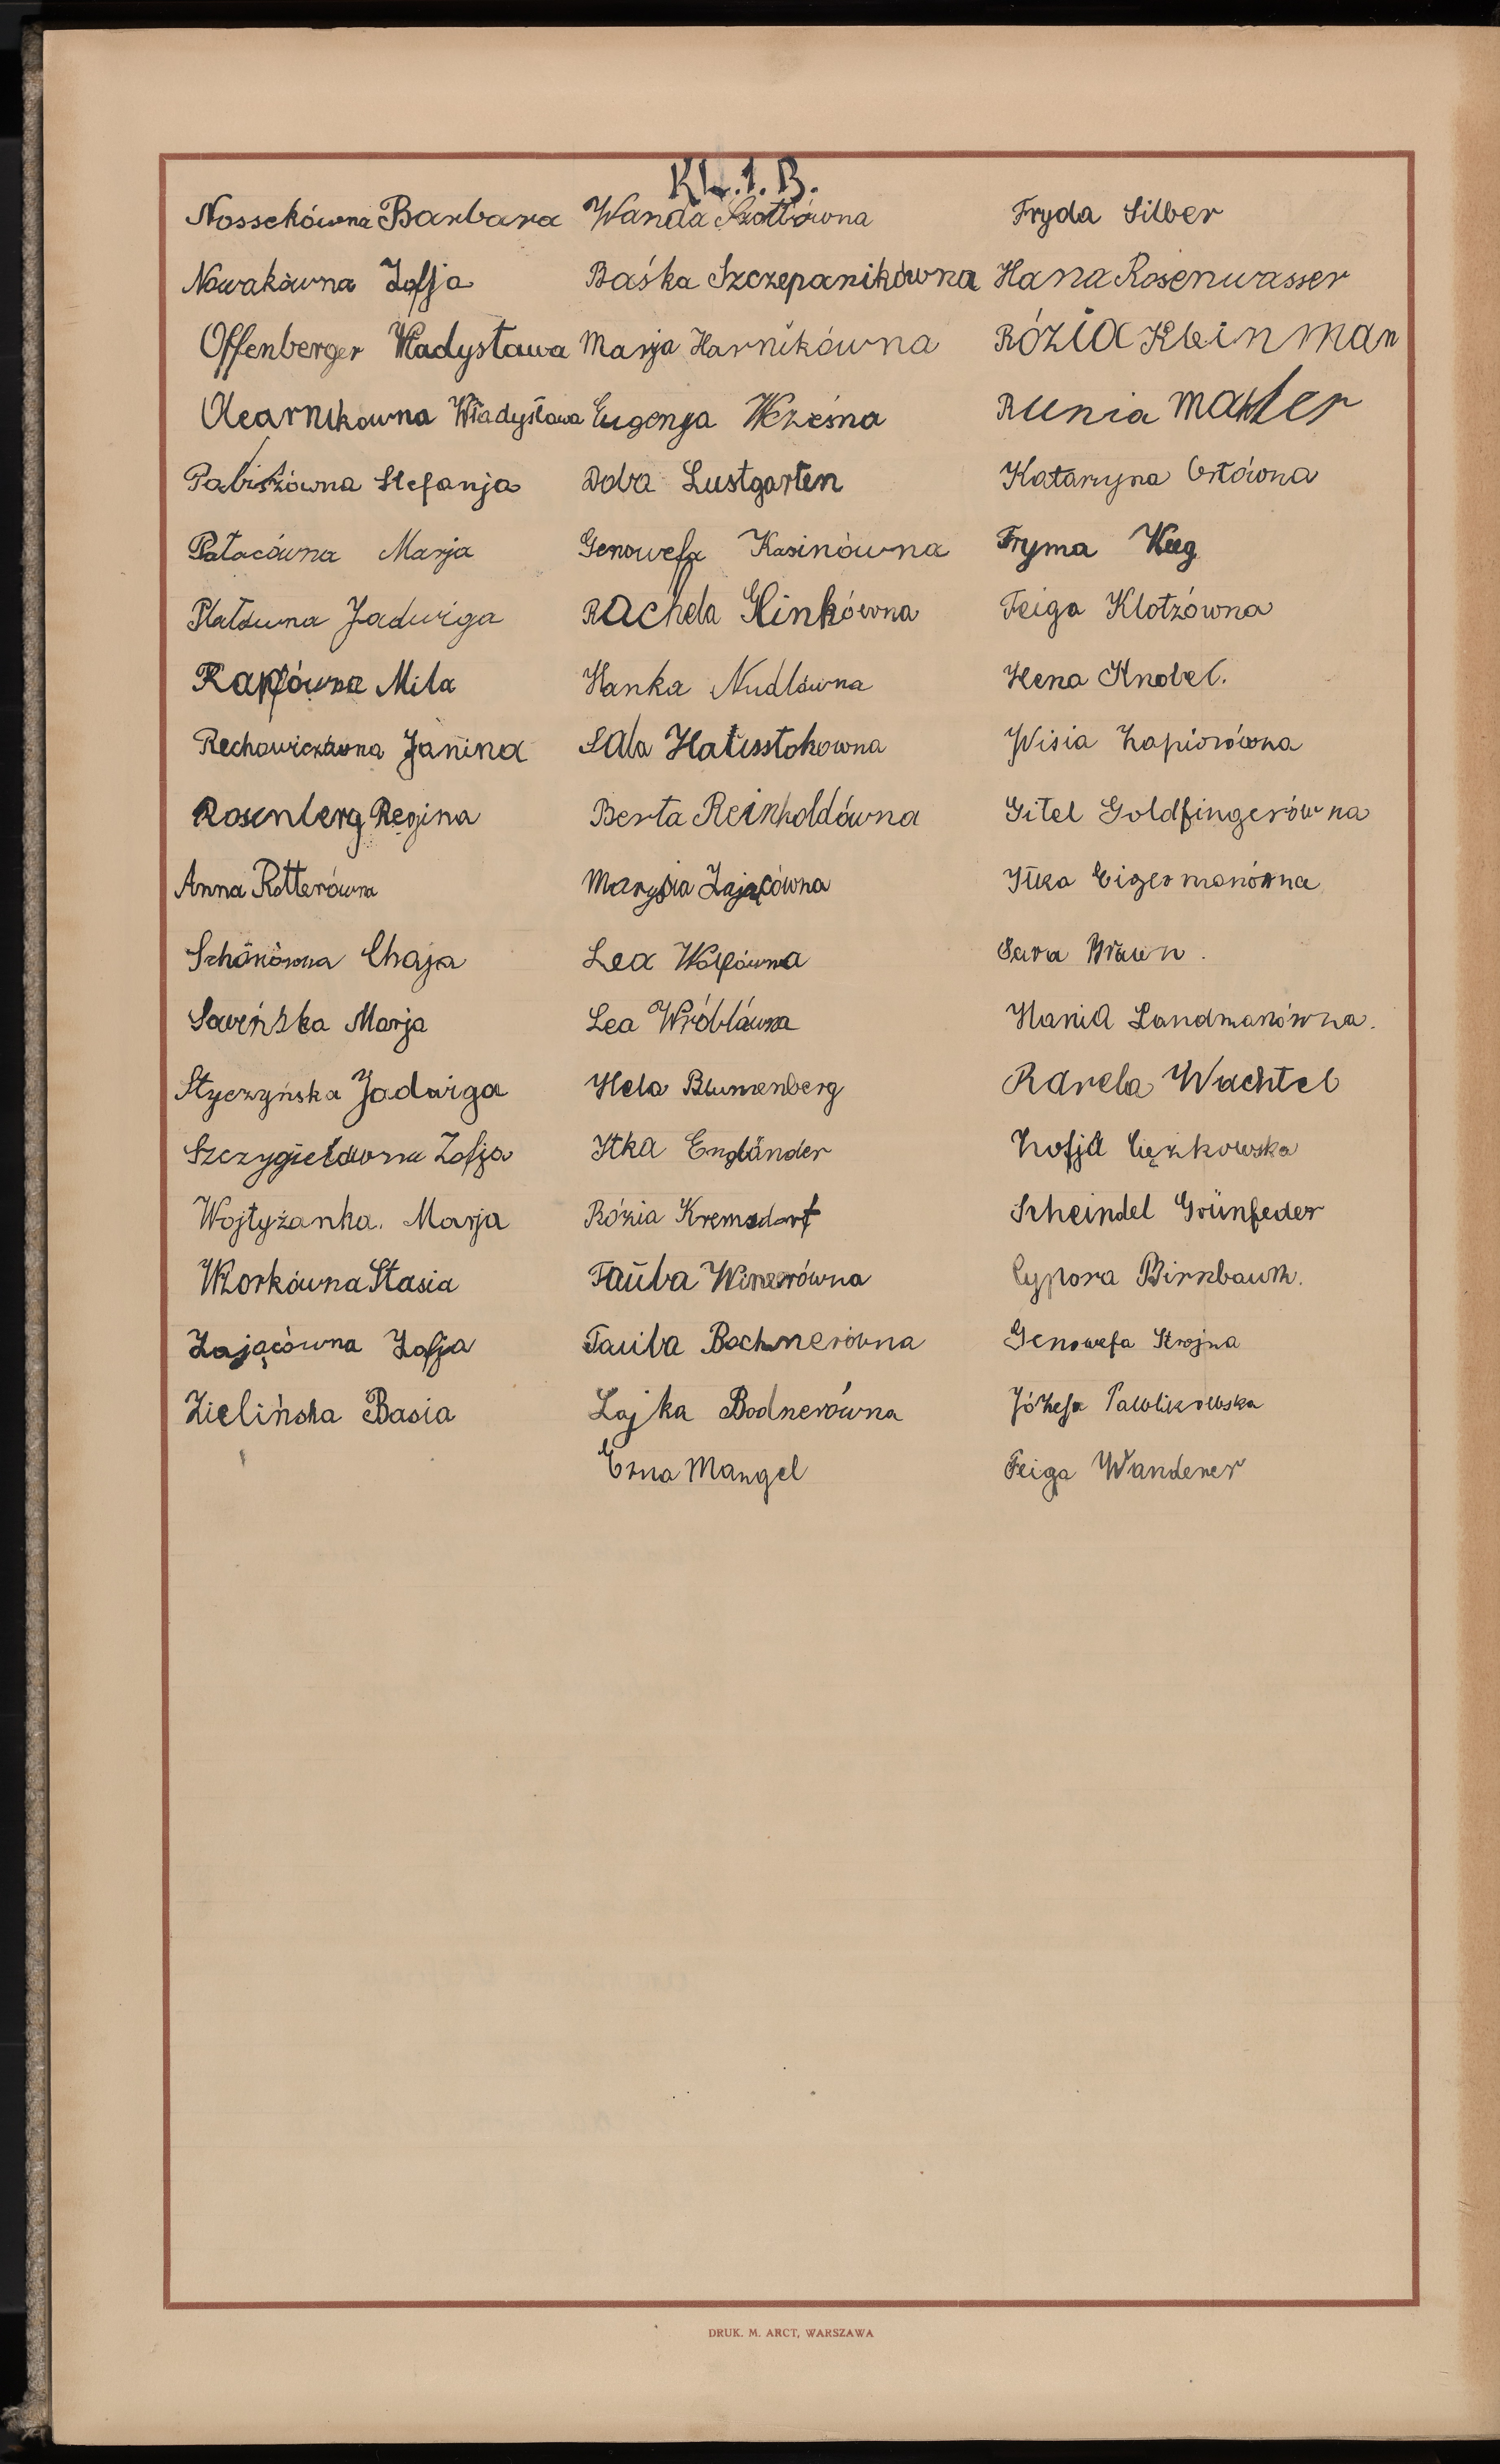 Kl. 1. B.
Nossekówna Barbara
Nowakówna Zofja
Offenberger Władysława
Olearnikowna Władysława
Pabiszówna Stefanja
Pałacówna Marja
Płatówna Jadwiga
Rappówna Mila
Rechowiczówna Janina
Rosenberg Regina
Anna Rotterówna
Schönówna Chaja
Sawińska Marja
Styczyńska Jadwiga
Szczygiełówna Zofja
Wojtyżanka. Marja
Wzorkówna Stasia
Zającówna Zofja
Zielińska Basia
Wanda Szotłówna
Baśka Szczepanikówna
Marja Harnikówna
Eugenja Wcześna
Doba Lustgarten
Genowefa Kasinówna
Rachela Glinkówna
Hanka Nudlówna
Sala
Berta Reinholdówna
Marysia Zającówna
Lea Wolfówna
Lea Wróblówna
Hela Blumenberg
Itka Engländer
Rózia Kremsdorf
Tauba Winerówna
Tauba Bochnerówna
Lajka Bodnerówna
Erna Mangel
Fryda Silber
Hana Rosenwasser
Rózia Kleinman
Runia Mahler
Katarzyna Ortówna
Fryma Keeg
Feiga Klotzówna
Hena Knobel.
Wisia Zapiorówna
Gitel Goldfingerówna
Itka Eigermanówna
Sara Braun.
Hania Landmanówna.
Karela Wachtel
Zofja Ciężkowska
Scheindel Grünfeder
Cypora Birnbaum.
Genowefa Strojna
Józefa Pawlikowska
Feiga Wanderer
DRUK. M. ARCT, WARSZAWA